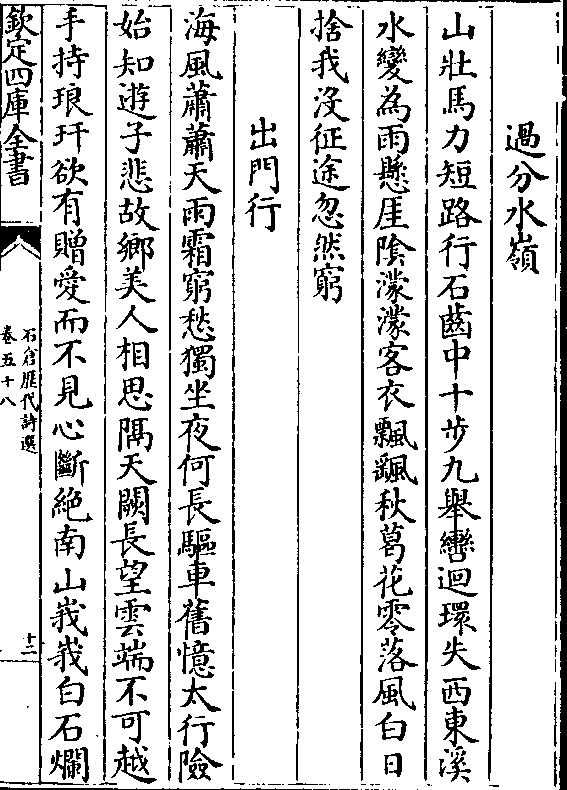 過分水嶺
山壯馬力短路行石齒中十步九舉轡迴環失西東溪
水變為雨懸厓隂濛濛客衣飄颻秋葛花零落風白日
捨我沒征途忽然窮
出門行
海風蕭蕭天雨霜窮愁獨坐夜何長驅車舊憶太行險
始知遊子悲故鄉美人相思隔天闕長望雲端不可越
手持琅玕欲有贈愛而不見心斷絶南山峩峩白石爛
欽定四庫全書
石倉歷代詩選
卷五十八
十二